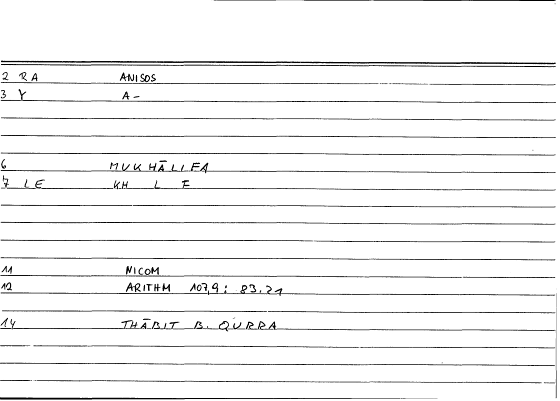 2 RA ANISOS
3 Y A-
6 MUKHĀLIFA
7 LE KH L F
11 NICOM
12 ARITHM 107,9 : 83.21
14 THĀBIT B. QURRA